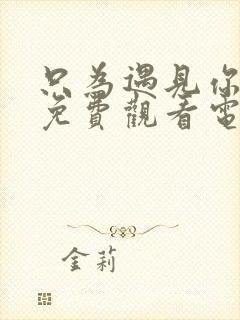 只為遇見你
免費觀看電
金莉